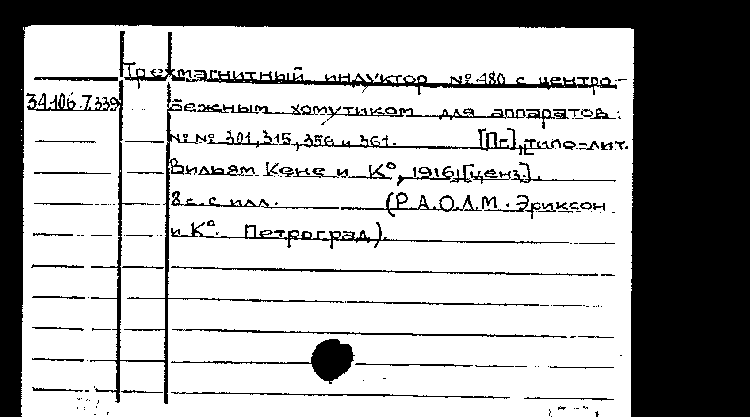 Трехмагнитный индуктор № 480 с центро-
34.106.7.339
бежным хомутиком для аппаратов:
№№ 301, 315, 356 и 361. [Пг], типо-лит.
Вильям Кене и К°, 1916, [ценз].
8 с. с илл. (Р.А.О.Л.М. Эриксон
и К°. Петроград).